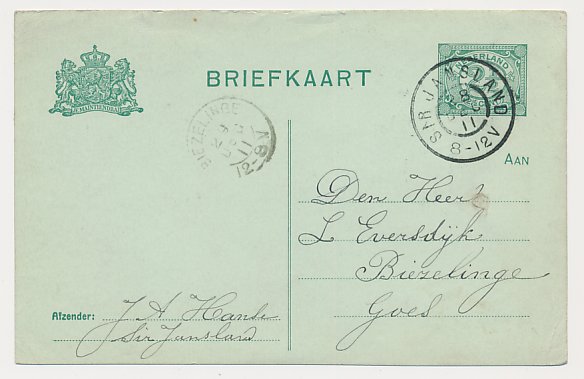 NEDERLAND
BRIEFKAART
SIR JANSLAND
8-12V
11
BIEZELINGE
12-8
11
AAN
Den Heer
L Eversdijk
Biezelinge
Goes
Afzender: J A Hanse
Sir Jansland